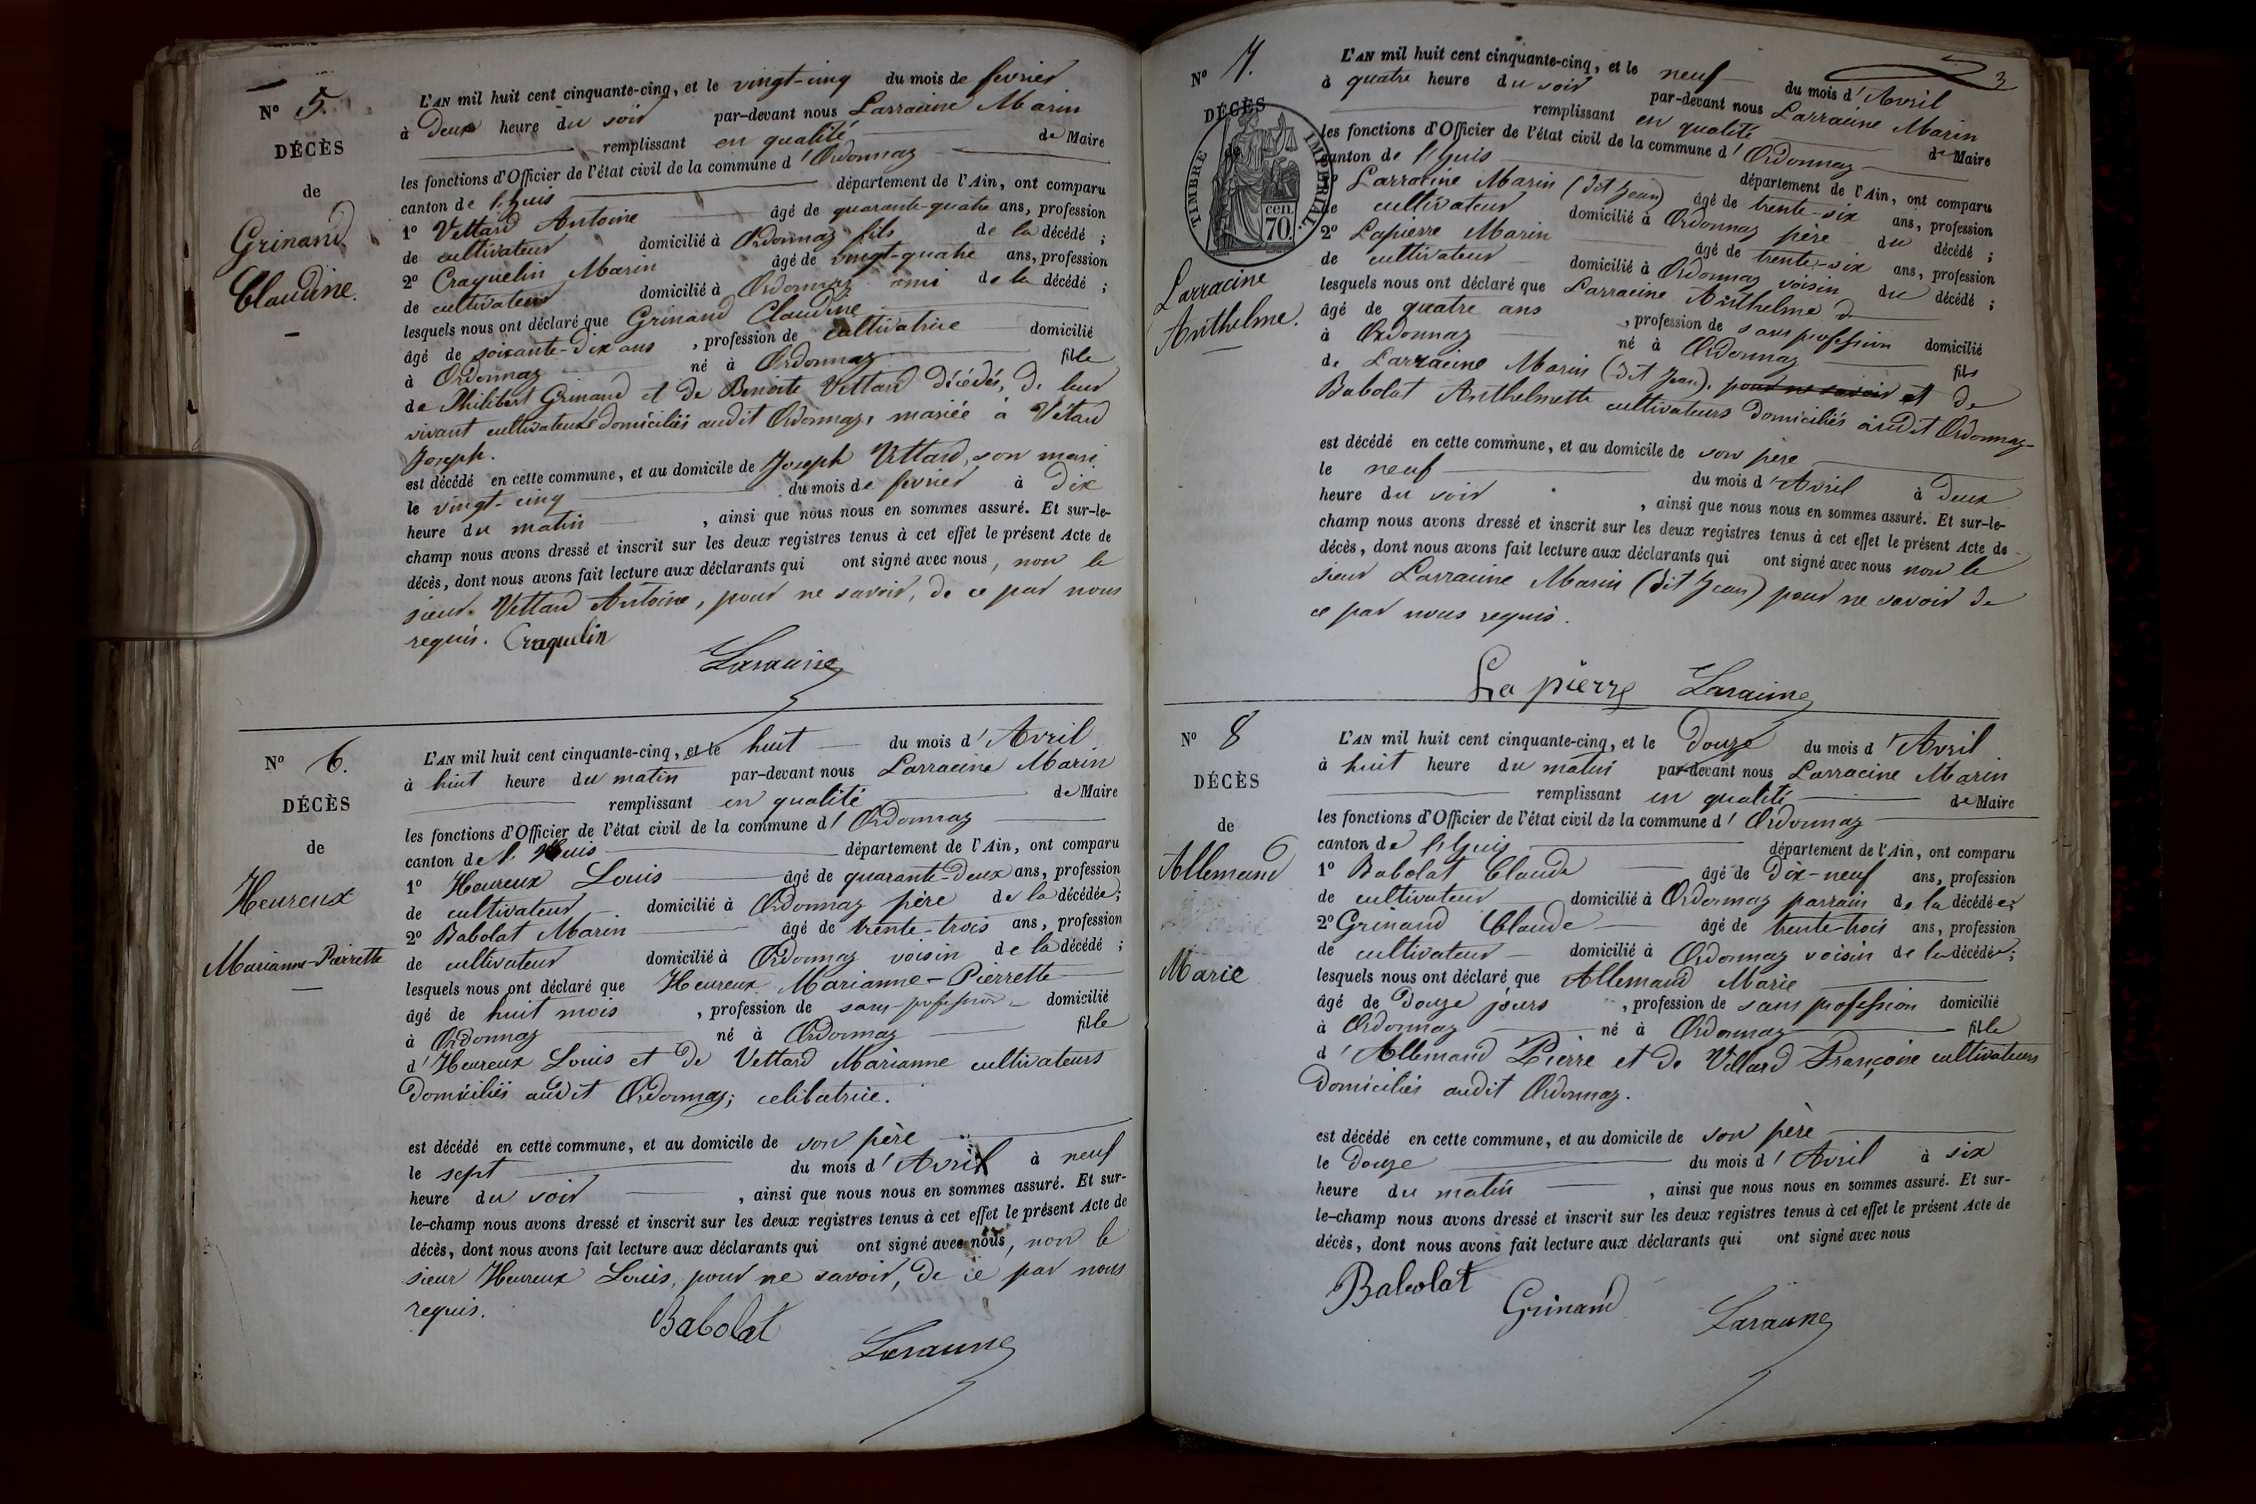 N° 5.
DÉCÈS
de
Grinand
Claudine.
L'AN mil huit cent cinquante-cinq, et le vingt-cinq du mois de fevrier
à Deux heure du soir par-devant nous Larracine Marin
remplissant en qualité de Maire
les fonctions d'Officier de l'état civil de la commune d'Ordonnaz
canton de l'huis département de l'Ain, ont comparu
1° Vettard Antoine âgé de quarante-quatre ans, profession
de cultivateur domicilié à Ordonnaz fils de la décédé ;
2° Craquelin Marin âgé de vingt-quatre ans, profession
de cultivateur domicilié à Ordonnaz ami de la décédé ;
lesquels nous ont déclaré que Grinand Claudine
âgé de soixante-Dix ans , profession de cultivatrice domicilié
à Ordonnaz né à Ordonnaz fille
de Philibert Grinand et de Benoite Vettard décédés, de leur
vivant cultivateurs domiciliés audit Ordonnaz, mariée à Vétard
Joseph.
est décédé en cette commune, et au domicile de Joseph Vettard, son mari
le vingt-cinq du mois de fevrier à Dix
heure du matin , ainsi que nous nous en sommes assuré. Et sur-le-
champ nous avons dressé et inscrit sur les deux registres tenus à cet effet le présent Acte de
décès, dont nous avons fait lecture aux déclarants qui ont signé avec nous, non le
sieur Vettard Antoine, pour ne savoir, de ce par nous
requis. Craquelin
Laracine
N° 6.
DÉCÈS
de
Heureux
Marianne-Pierrette
L'AN mil huit cent cinquante-cinq, et le huit du mois d'Avril
à huit heure du matin par-devant nous Larracine Marin
remplissant en qualité de Maire
les fonctions d'Officier de l'état civil de la commune d'Ordonnaz
canton de l'huis département de l'Ain, ont comparu
1° Heureux Louis âgé de quarante-Deux ans, profession
de cultivateur domicilié à Ordonnaz père de la décédée ;
2° Babolat Marin âgé de trente-trois ans, profession
de cultivateur domicilié à Ordonnaz voisin de la décédé ;
lesquels nous ont déclaré que Heureux Marianne-Pierrette
âgé de huit mois , profession de sans profession domicilié
à Ordonnaz né à Ordonnaz fille
d'Heureux Louis et de Vettard Marianne cultivateurs
Domiciliés audit Ordonnaz; celibatrice.
est décédé en cette commune, et au domicile de son père
le sept du mois d'Avril à neuf
heure du soir , ainsi que nous nous en sommes assuré. Et sur-
le-champ nous avons dressé et inscrit sur les deux registres tenus à cet effet le présent Acte de
décès, dont nous avons fait lecture aux déclarants qui ont signé avec nous, non le
sieur Heureux Louis, pour ne savoir, de ce par nous
requis.
Babolat
Laracine
3
N° 7.
DÉCÈS
de
TIMBRE IMPERIAL
cen.
70
Larracine
Anthelme.
L'AN mil huit cent cinquante-cinq, et le neuf du mois d'Avril
à quatre heure du soir par-devant nous Larracine Marin
remplissant en qualité de Maire
les fonctions d'Officier de l'état civil de la commune d'Ordonnaz
canton de l'huis département de l'Ain, ont comparu
1° Larracine Marin (dit Jean) âgé de trente-six ans, profession
de cultivateur domicilié à Ordonnaz père du décédé ;
2° Lapierre Marin âgé de trente-six ans, profession
de cultivateur domicilié à Ordonnaz voisin du décédé ;
lesquels nous ont déclaré que Larracine Anthelme d
âgé de quatre ans , profession de sans profession domicilié
à Ordonnaz né à Ordonnaz fils
de Larracine Marin (dit Jean), pour ne savoir et de
Babolat Anthelmette cultivateurs Domiciliés audit Ordonnaz
est décédé en cette commune, et au domicile de son père
le neuf du mois d'Avril à Deux
heure du soir , ainsi que nous nous en sommes assuré. Et sur-le-
champ nous avons dressé et inscrit sur les deux registres tenus à cet effet le présent Acte de
décès, dont nous avons fait lecture aux déclarants qui ont signé avec nous non le
sieur Larracine Marin (dit Jean) pour ne savoir de
ce par nous requis.
La pierre Laracine
N° 8
DÉCÈS
de
Allemand
Marie
L'AN mil huit cent cinquante-cinq, et le Douze du mois d'Avril
à huit heure du matin par-devant nous Larracine Marin
remplissant en qualité de Maire
les fonctions d'Officier de l'état civil de la commune d'Ordonnaz
canton de l'huis département de l'Ain, ont comparu
1° Babolat Claude âgé de Dix-neuf ans, profession
de cultivateur domicilié à Ordonnaz parrain de la décédée ;
2° Grinand Claude âgé de trente-trois ans, profession
de cultivateur domicilié à Ordonnaz voisin de la décédée ;
lesquels nous ont déclaré que Allemand Marie
âgé de Douze jours , profession de sans profession domicilié
à Ordonnaz né à Ordonnaz fille
d'Allemand Pierre et de Vettard Françoise cultivateurs
Domiciliés audit Ordonnaz.
est décédé en cette commune, et au domicile de son père
le Douze du mois d'Avril à six
heure du matin , ainsi que nous nous en sommes assuré. Et sur-
le-champ nous avons dressé et inscrit sur les deux registres tenus à cet effet le présent Acte de
décès, dont nous avons fait lecture aux déclarants qui ont signé avec nous
Babolat
Grinand
Laracine